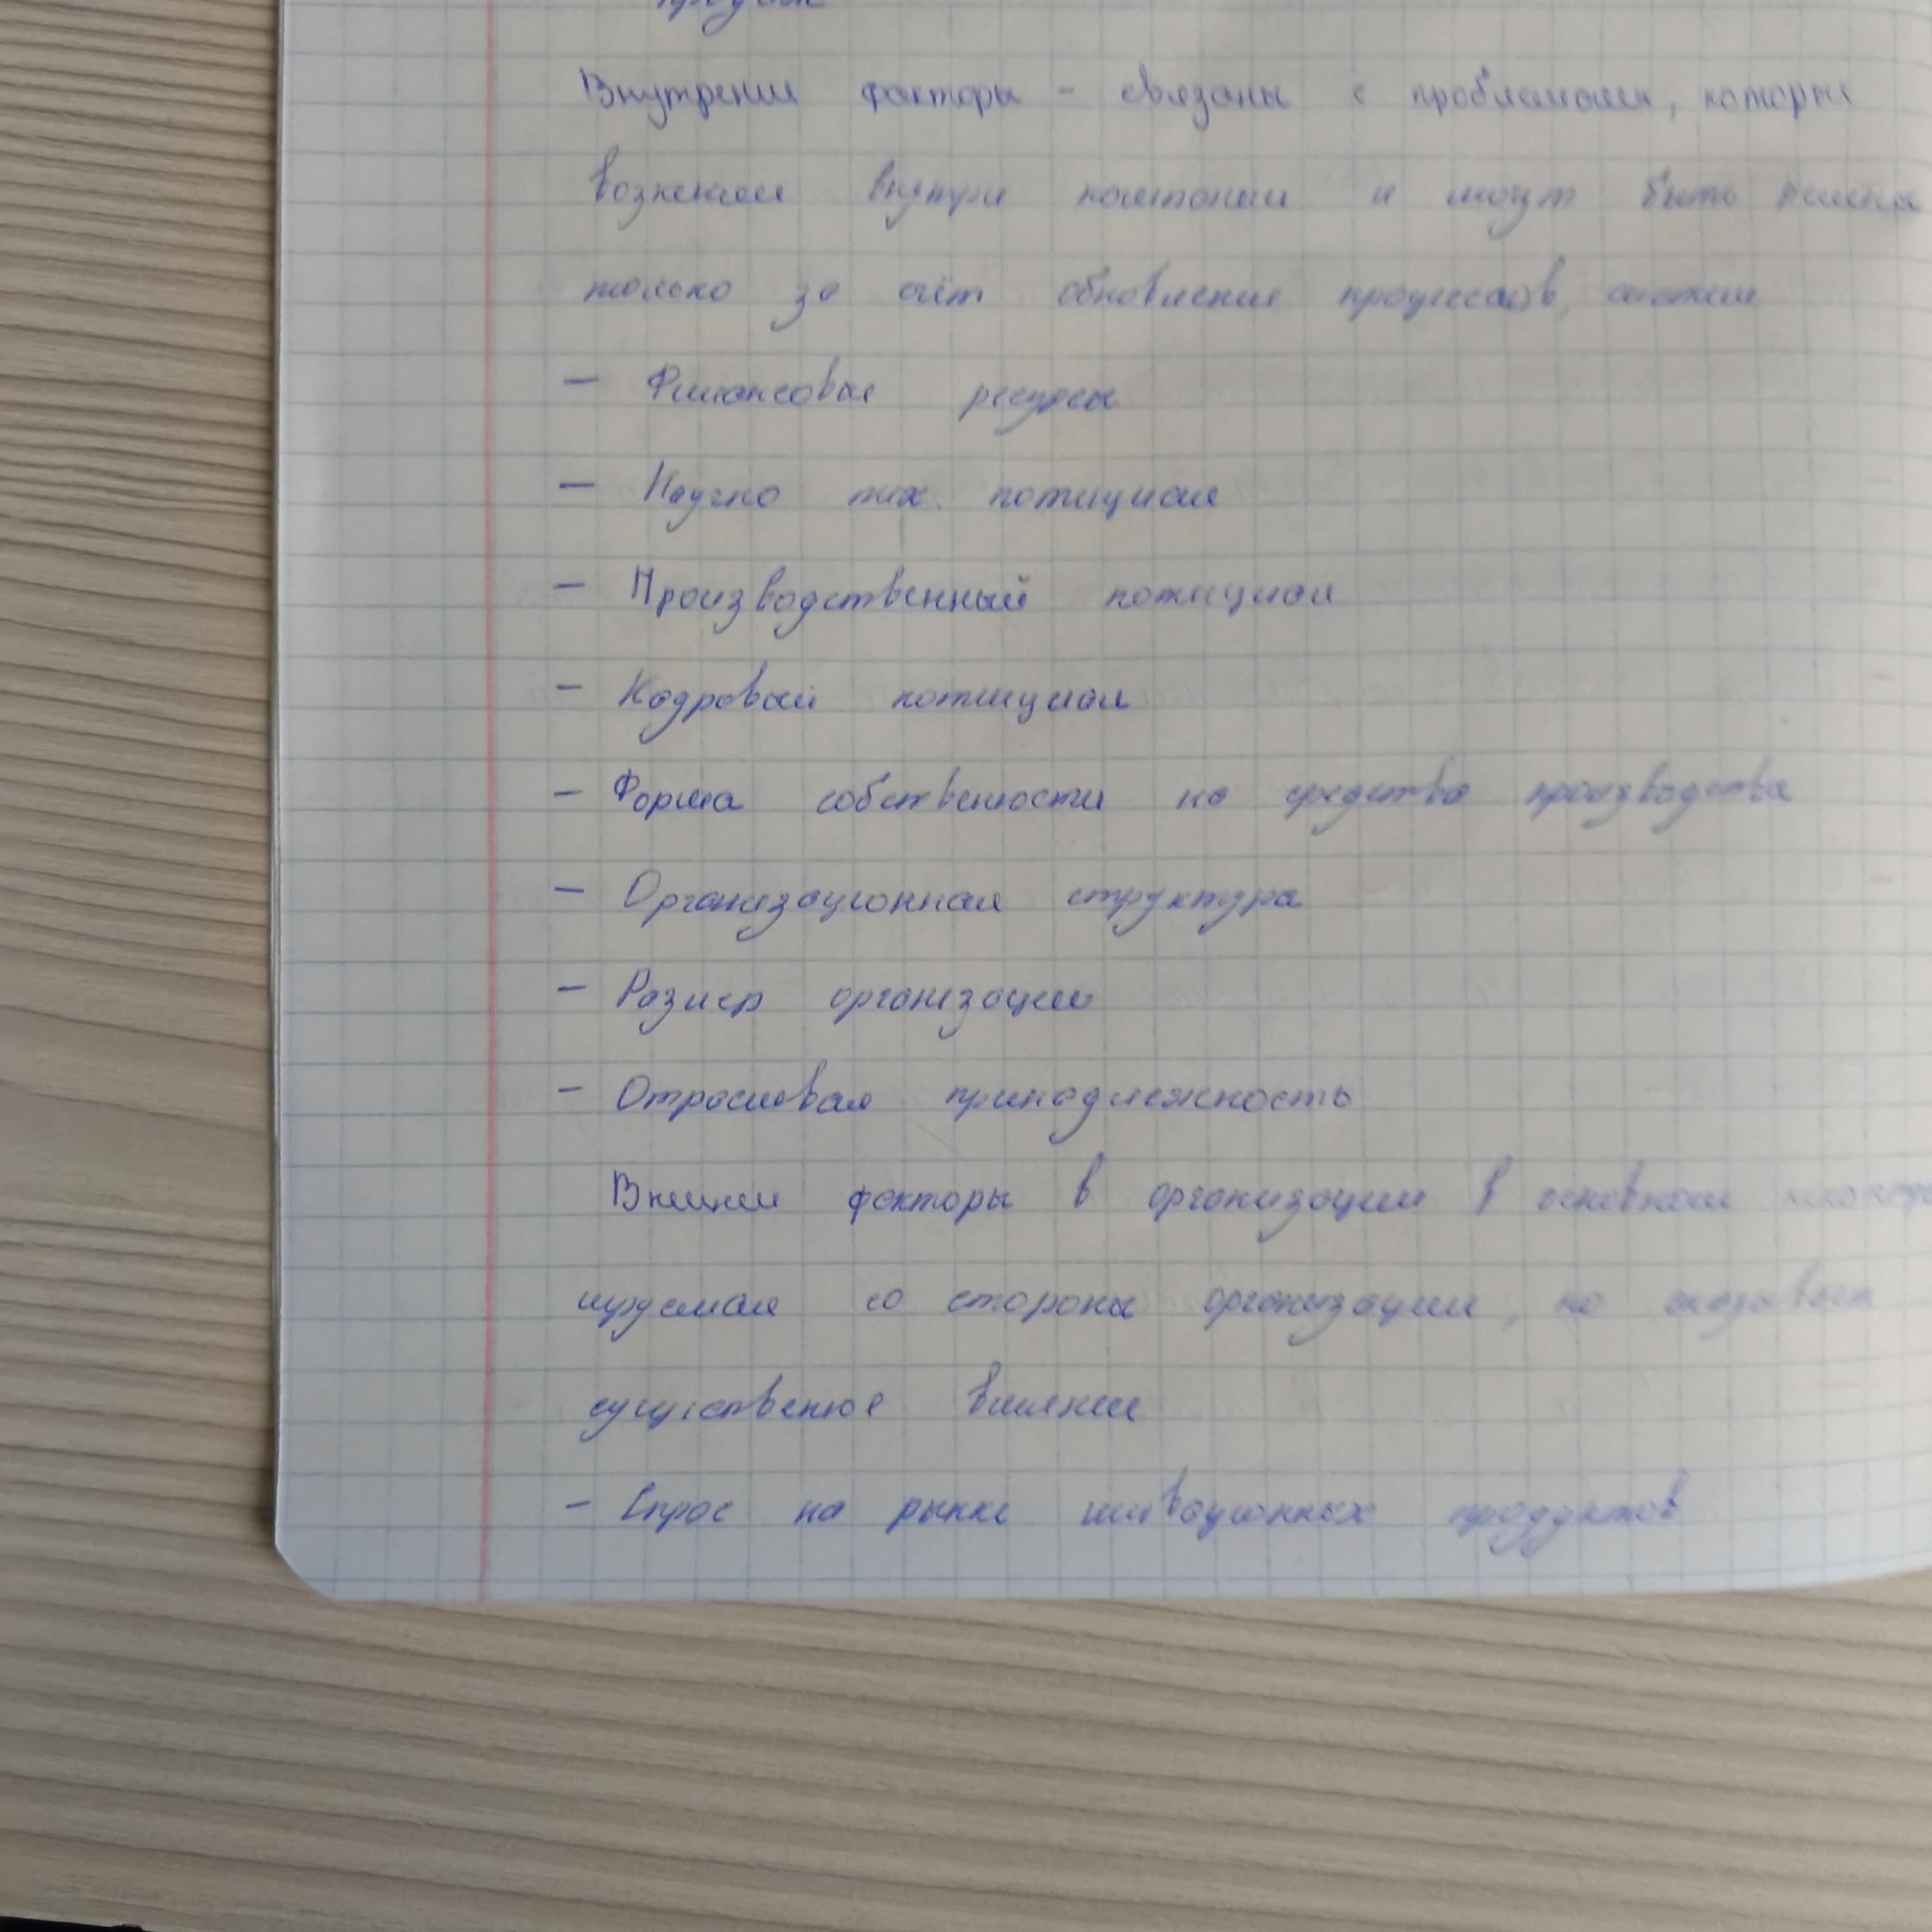 Внутрении факторы - связаны с проблемами, которые
возникали внутри компании и могут быть решены
только за счёт обновления процессов, систем
- Финансовые ресурсы
- Научно тех. потенциал
- Производственный потенциал
- Кадровый потенциал
- Форма собственности на средства производства
- Организационная структура
- Размер организации
- Отраслевая принадлежность
Внешнии факторы в организации в основном
со стороны организации, но
существенное влияние
- Спрос на рынке продуктов